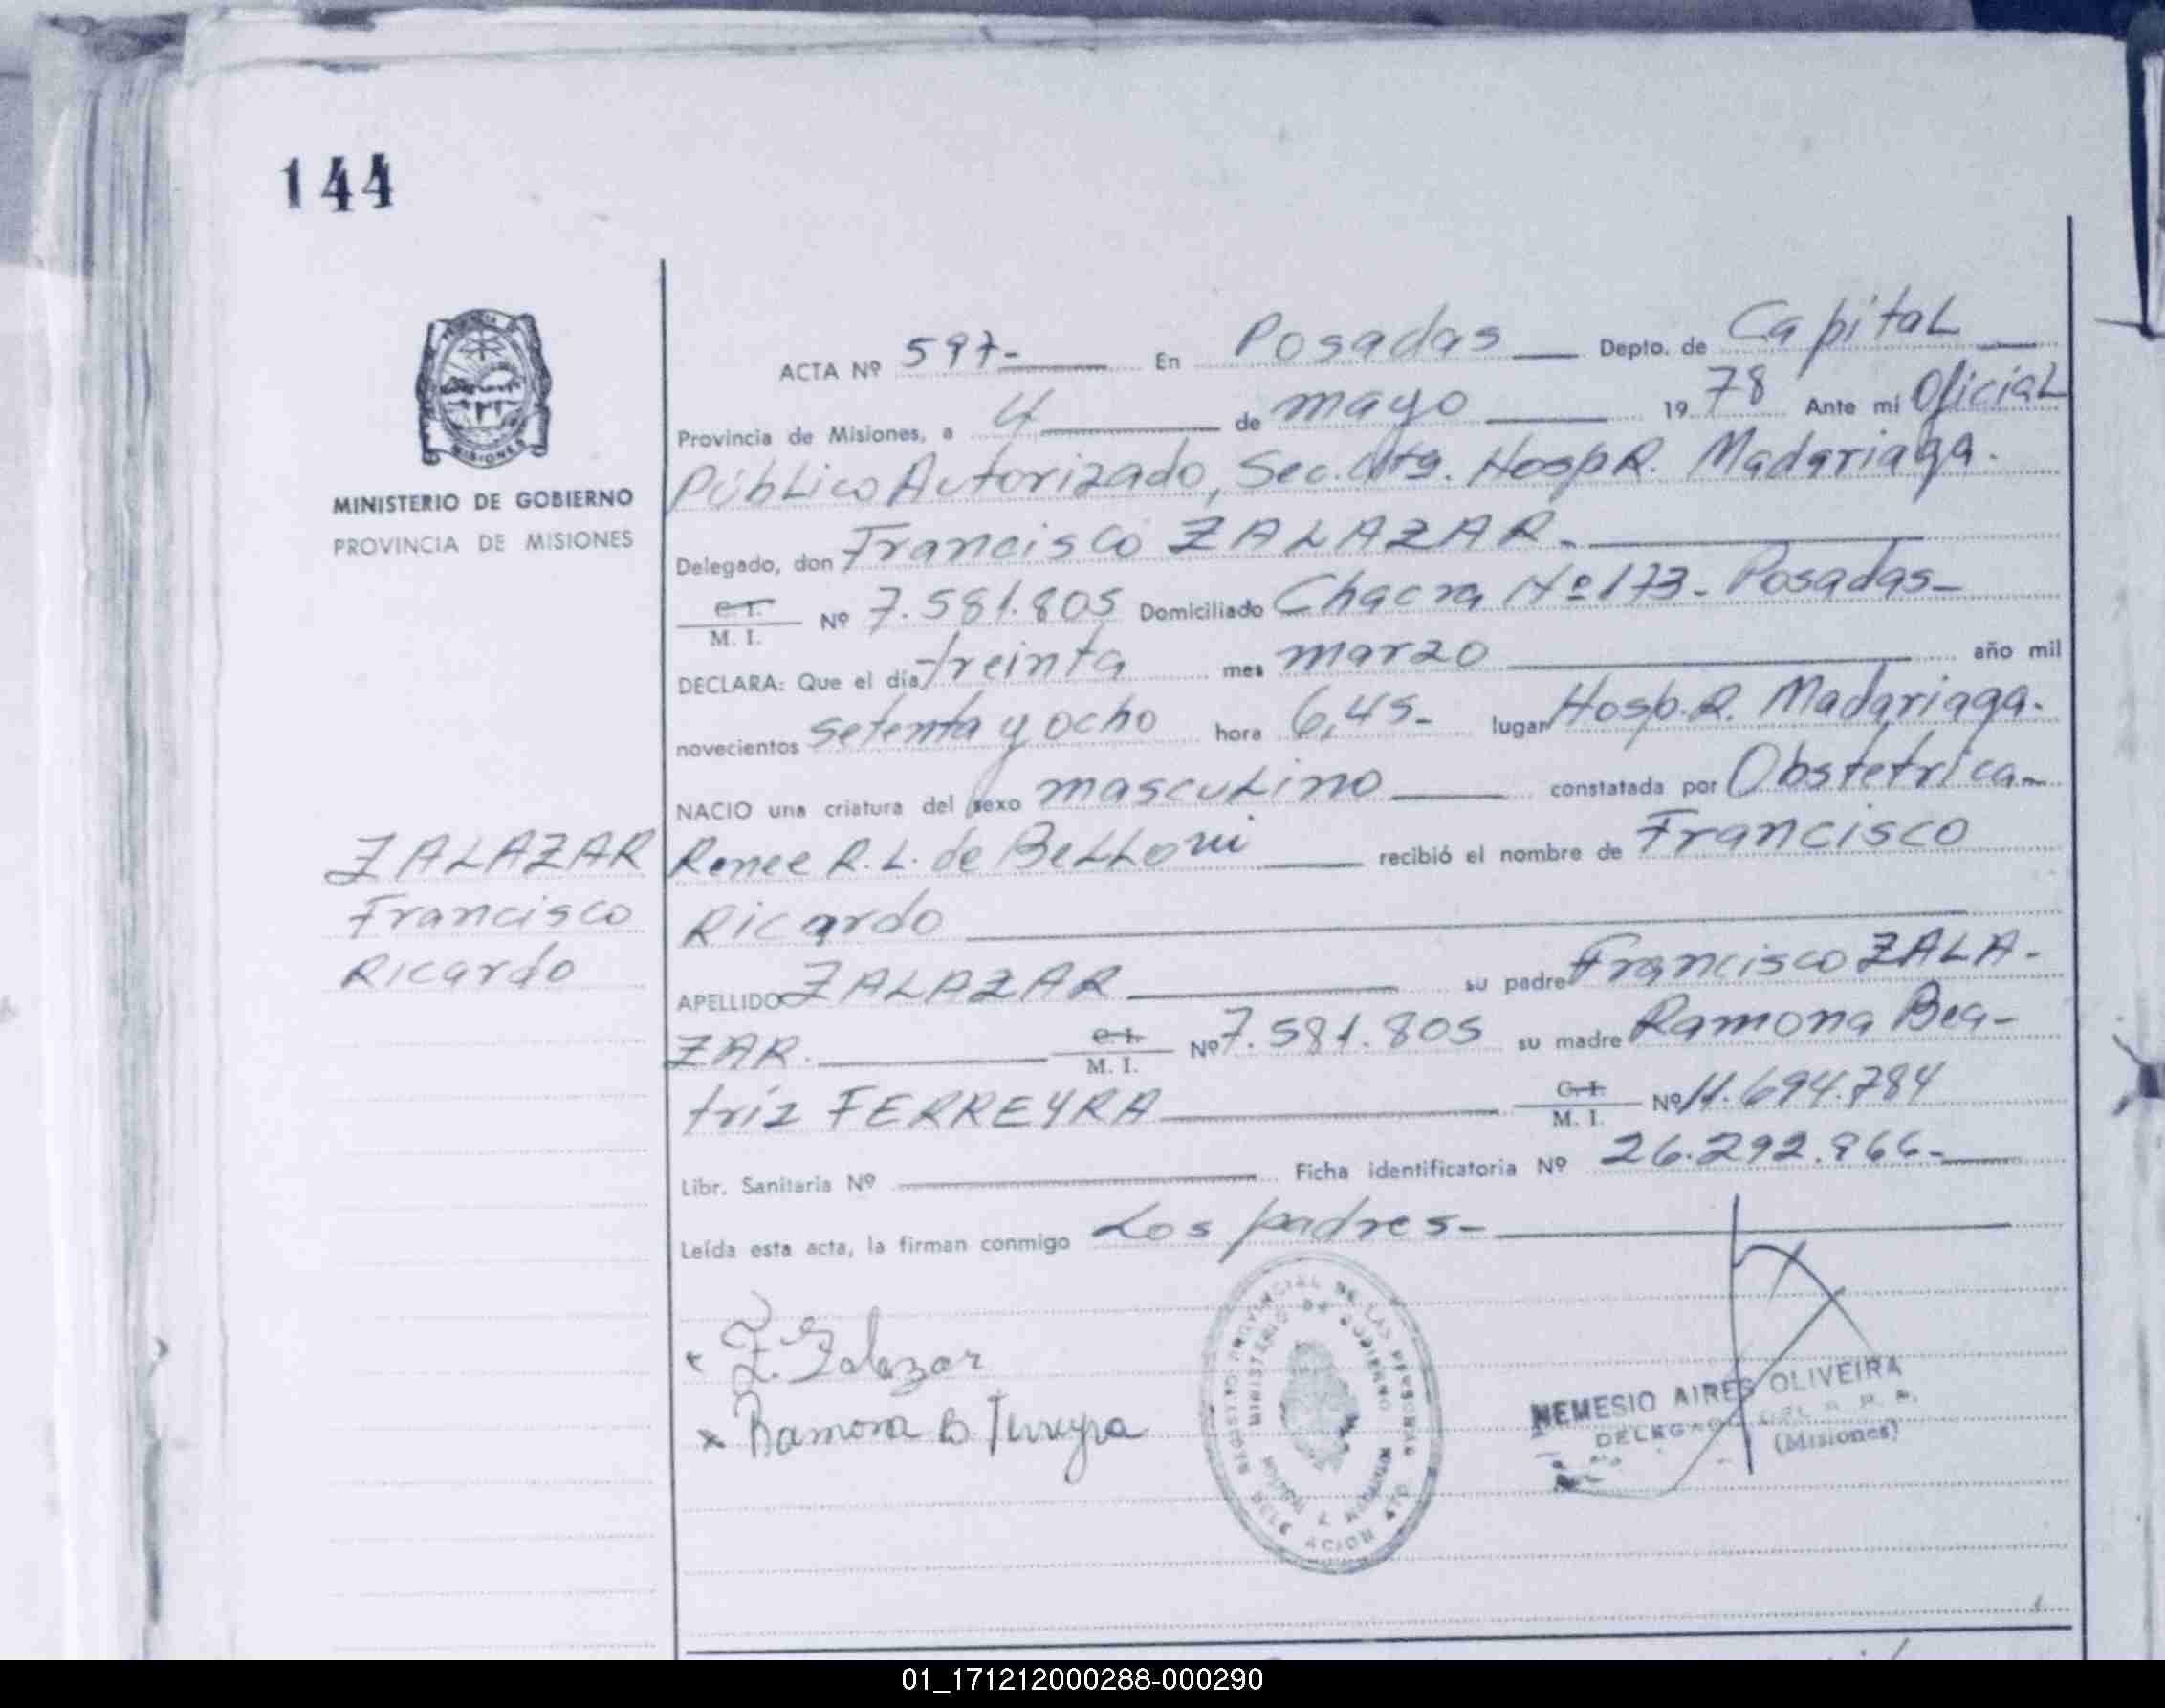 144
PROVINCIA
MISIONES
MINISTERIO DE GOBIERNO
PROVINCIA DE MISIONES
ZALAZAR
Francisco
Ricardo
ACTA Nº 597- En Posadas Depto. de Capital
Provincia de Misiones, a 4 de mayo 1978 Ante mí Oficial
Público Autorizado, Sec. Hosp R. Madariaga.
Delegado, don Francisco ZALAZAR.
C. I.
M. I. Nº 7.581.805 Domiciliado Chacra Nº 173- Posadas-
DECLARA: Que el día treinta mes marzo año mil
novecientos setenta y ocho hora 6,45- lugar Hosp. R. Madariaga.
NACIO una criatura del sexo masculino constatada por Obstetrica
Renee R. L. de Belloni recibió el nombre de Francisco
Ricardo
APELLIDO ZALAZAR su padre Francisco ZALA-
ZAR. C. I.
M. I. Nº 7.581.805 su madre Ramona Bea-
triz FERREYRA C. I.
M. I. Nº 11.694.784
Libr. Sanitaria Nº Ficha identificatoria Nº 26.292.966-
Leída esta acta, la firman conmigo Los padres-
x F. Zalazar
x Ramona B. Ferreyra
REGISTRO PROVINCIAL DE LAS PERSONAS
MINISTERIO DE GOBIERNO
DELEGACION
NEMESIO AIRES OLIVEIRA
DELEGADO DEL R. P. P.
(Misiones)
01_171212000288-000290